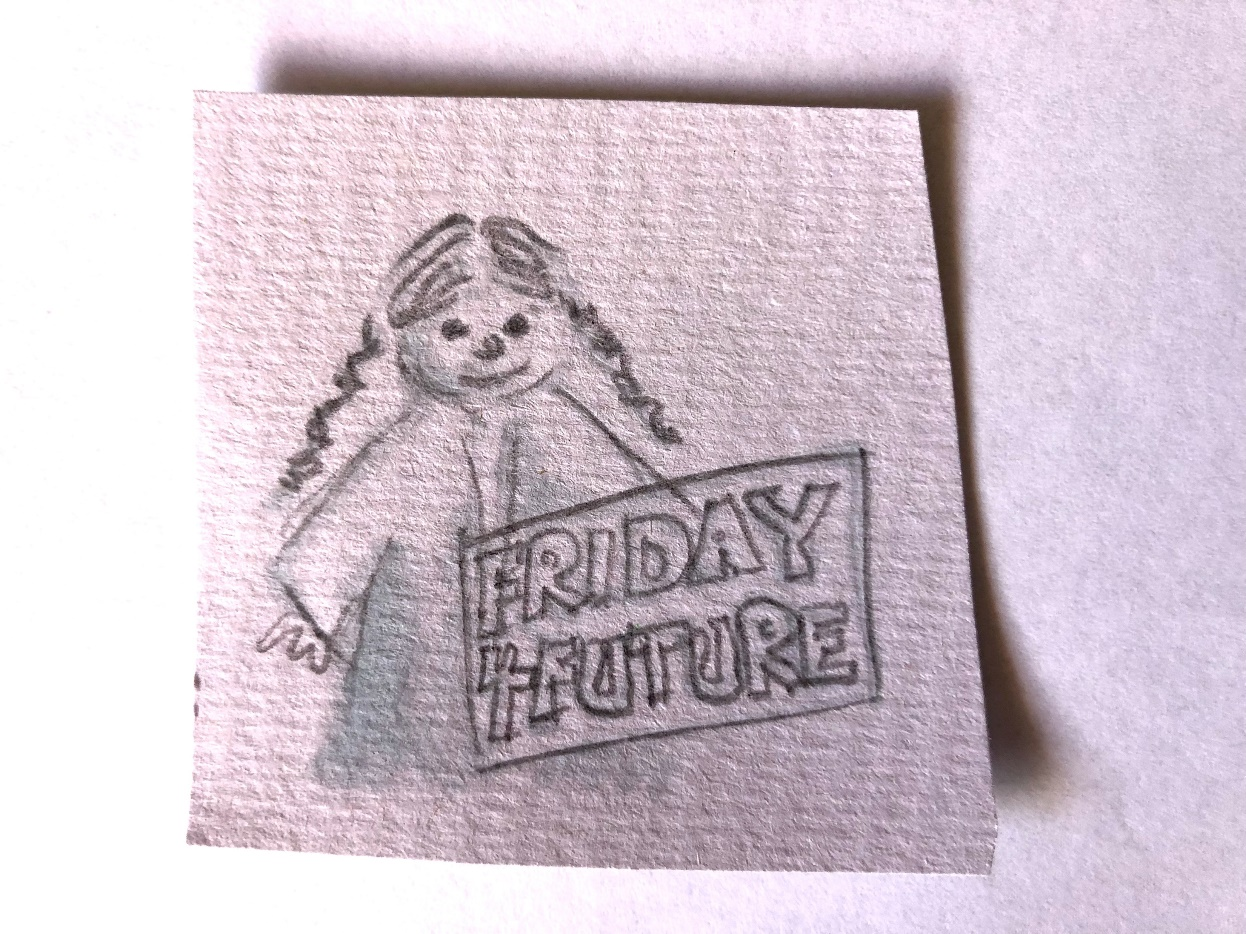 FRIDAY
4FUTURE